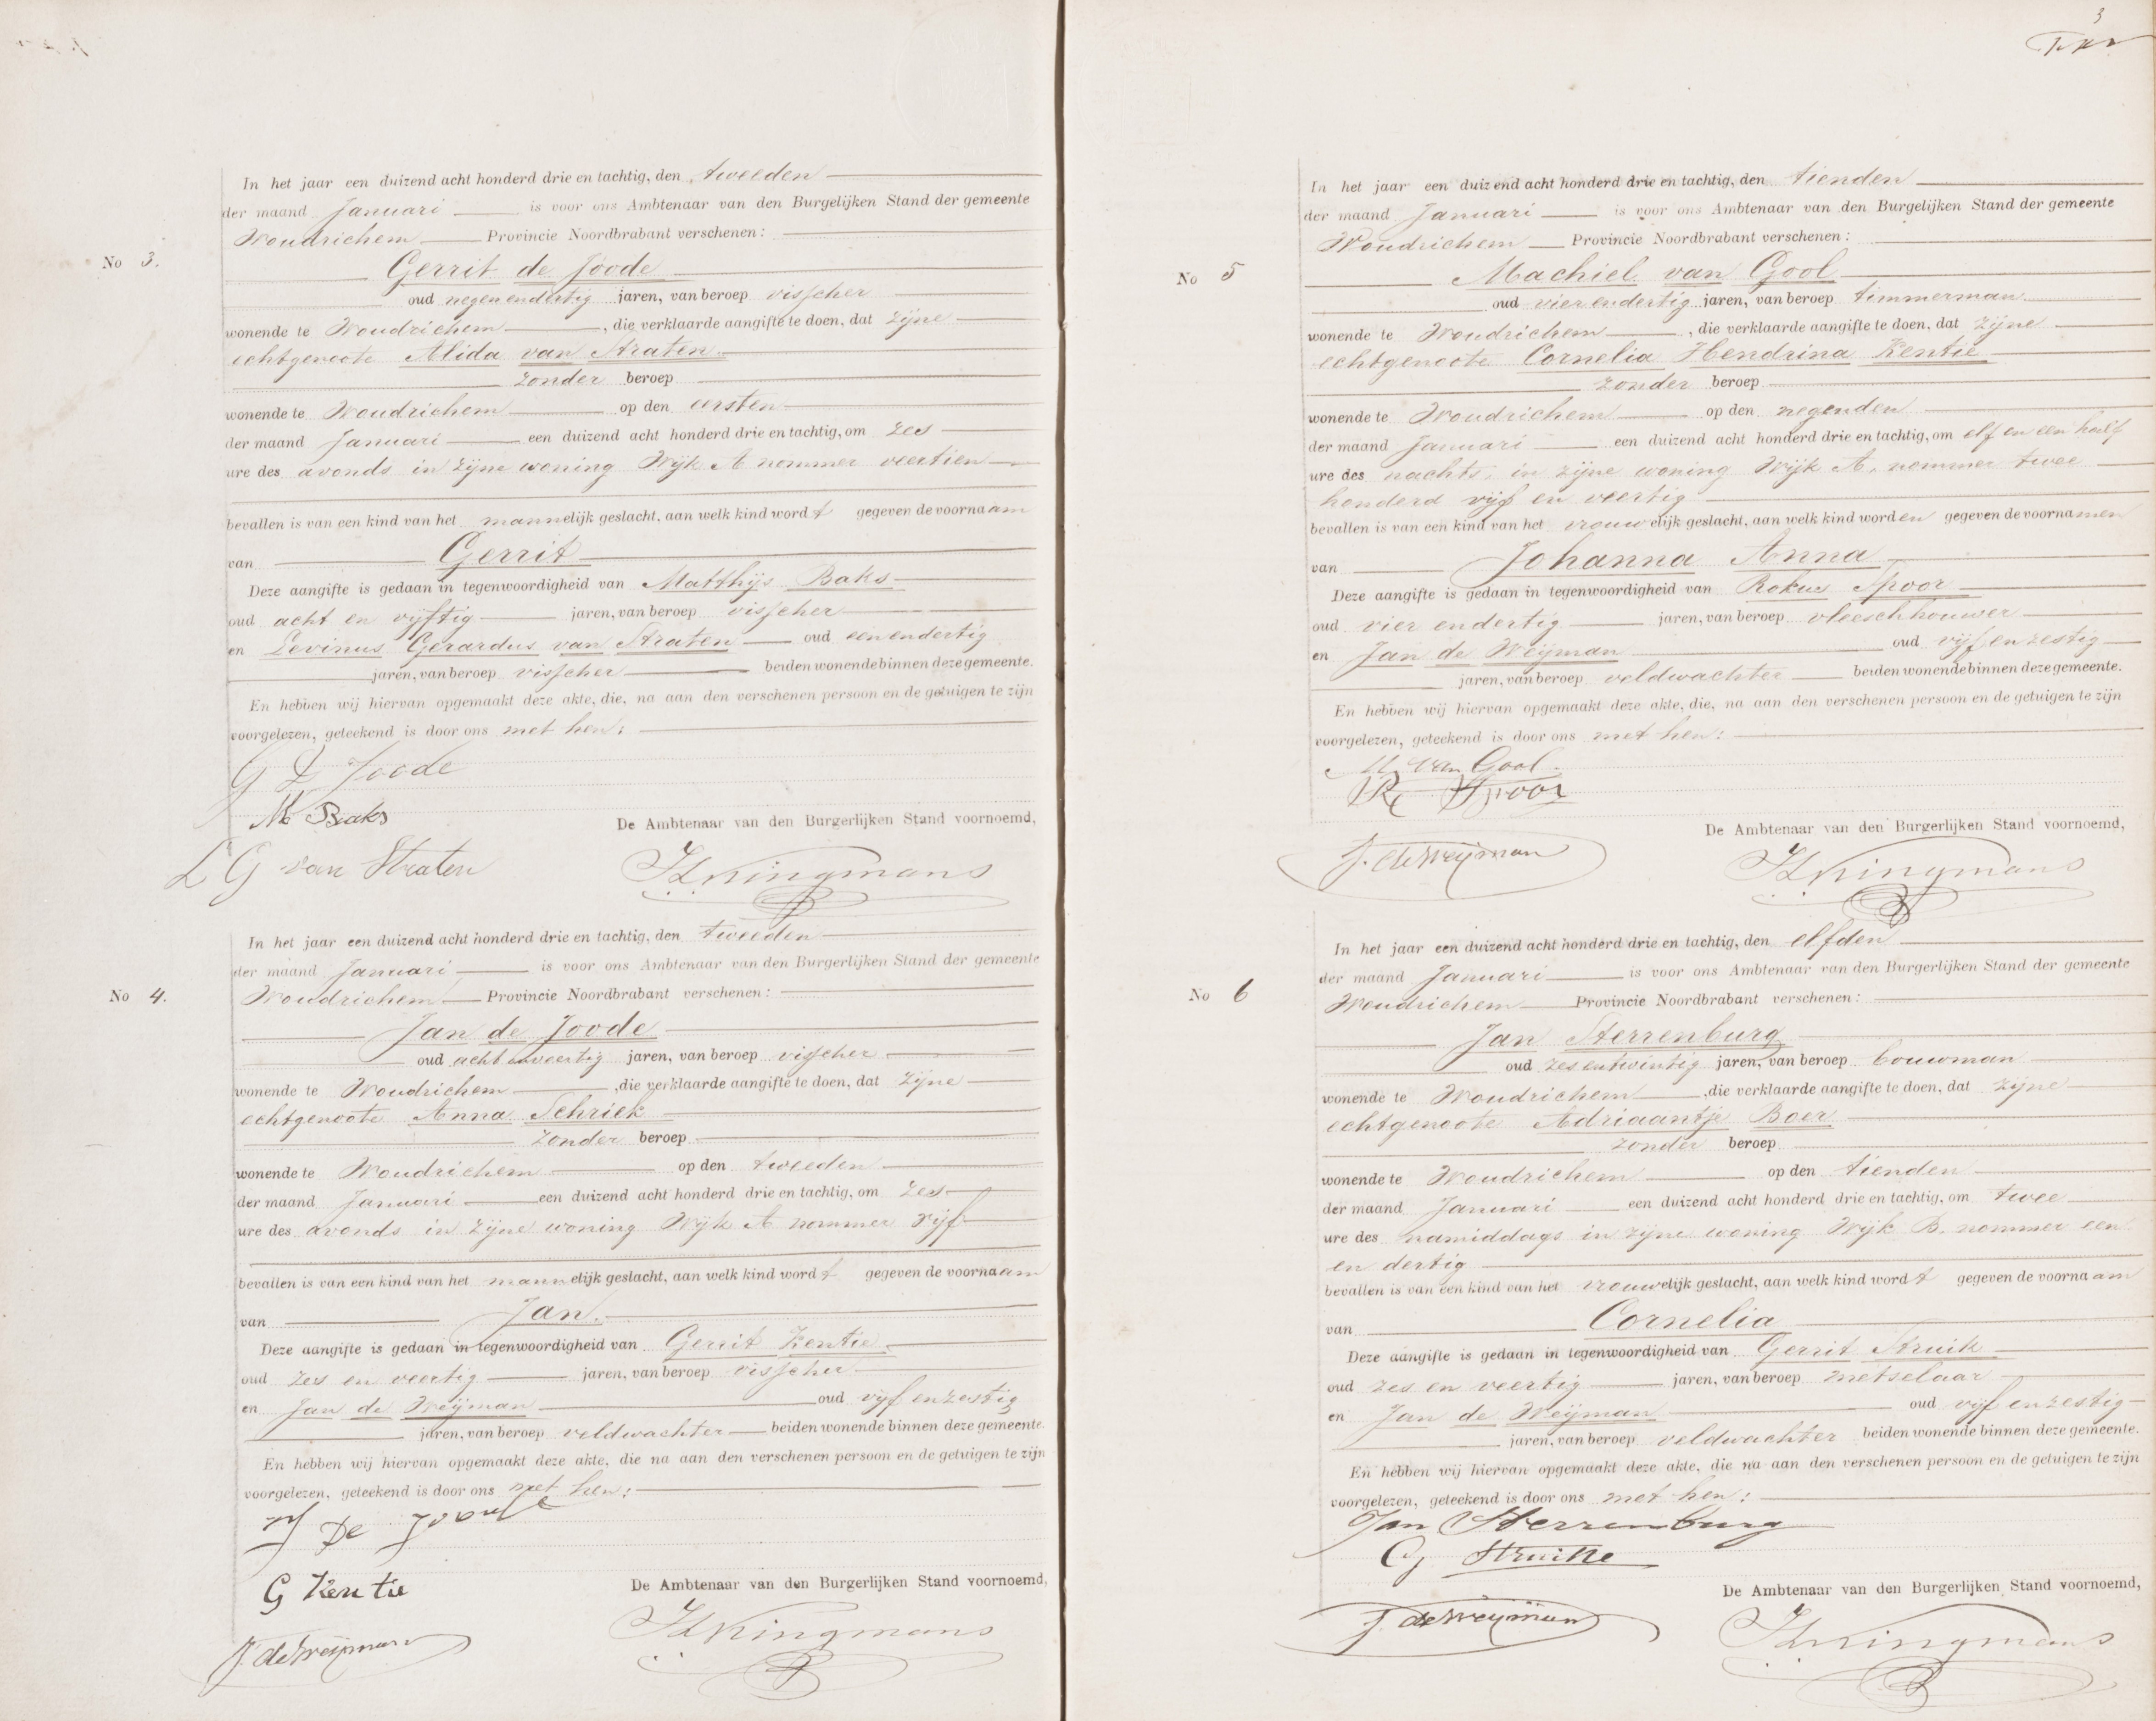 In het jaar een duizend acht honderd drie en tachtig, den tweeden
der maand Januari is voor ons Ambtenaar van den Burgelijken Stand der gemeente
Woudrichem Provincie Noordbrabant verschenen:
No 3.
Gerrit de Joode
oud negenendertig jaren, van beroep visscher
wonende te Woudrichem, die verklaarde aangifte te doen, dat zijne
echtgenoote Alida van Straten
zonder beroep
wonende te Woudrichem op den eersten
der maand Januari een duizend acht honderd drie en tachtig, om zes
ure des avonds in zijne woning Wijk A nommer veertien
bevallen is van een kind van het mannelijk geslacht, aan welk kind wordt gegeven de voornaam
van Gerrit
Deze aangifte is gedaan in tegenwoordigheid van Matthijs Baks
oud acht en vijftig jaren, van beroep visscher
en Levinus Gerardus van Straten oud eenendertig
jaren, van beroep visscher beiden wonende binnen deze gemeente.
En hebben wij hiervan opgemaakt deze akte, die, na aan den verschenen persoon en de getuigen te zijn
voorgelezen, geteekend is door ons met hen:
G D Joode
M Baks
De Ambtenaar van den Burgerlijken Stand voornoemd,
L G van Straten
Kringmans
In het jaar een duizend acht honderd drie en tachtig, den tweeden
der maand Januari is voor ons Ambtenaar van den Burgerlijken Stand der gemeente
No 4. Woudrichem Provincie Noordbrabant verschenen:
Jan de Joode
oud achtenveertig jaren, van beroep visscher
wonende te Woudrichem, die verklaarde aangifte te doen, dat zijne
echtgenoote Anna Schriek
zonder beroep
wonende te Woudrichem op den tweeden
der maand Januari een duizend acht honderd drie en tachtig, om zes
ure des avonds in zijne woning Wijk A nommer vijf
bevallen is van een kind van het mannelijk geslacht, aan welk kind wordt gegeven de voornaam
van Jan.
Deze aangifte is gedaan in tegenwoordigheid van Gerrit Kentie
oud zes en veertig jaren, van beroep visscher
en Jan de Weijman oud vijf en zestig
jaren, van beroep veldwachter beiden wonende binnen deze gemeente.
En hebben wij hiervan opgemaakt deze akte, die na aan den verschenen persoon en de getuigen te zijn
voorgelezen, geteekend is door ons met hen:
J De Joode
G Kentie
De Ambtenaar van den Burgerlijken Stand voornoemd,
J. de Weijman
Kringmans
3
In het jaar een duizend acht honderd drie en tachtig, den tienden
der maand Januari is voor ons Ambtenaar van den Burgelijken Stand der gemeente
Woudrichem Provincie Noordbrabant verschenen:
No 5
Machiel van Gool
oud vierendertig jaren, van beroep timmerman
wonende te Woudrichem, die verklaarde aangifte te doen, dat zijne
echtgenoote Cornelia Hendrina Kentie
zonder beroep
wonende te Woudrichem op den negenden
der maand Januari een duizend acht honderd drie en tachtig, om elf en een half
ure des nachts, in zijne woning Wijk A, nommer twee
honderd vijf en veertig
bevallen is van een kind van het vrouwelijk geslacht, aan welk kind worden gegeven de voornamen
van Johanna Anna
Deze aangifte is gedaan in tegenwoordigheid van Rokus Spoor
oud vier endertig jaren, van beroep vleeschhouwer
en Jan de Weijman oud vijf en zestig
jaren, van beroep veldwachter beiden wonende binnen deze gemeente.
En hebben wij hiervan opgemaakt deze akte, die, na aan den verschenen persoon en de getuigen te zijn
voorgelezen, geteekend is door ons met hen:
M. van Gool.
R Spoor
De Ambtenaar van den Burgerlijken Stand voornoemd,
J. de Weijman
Kringmans
In het jaar een duizend acht honderd drie en tachtig, den elfden
der maand Januari is voor ons Ambtenaar van den Burgerlijken Stand der gemeente
No 6 Woudrichem Provincie Noordbrabant verschenen:
Jan Sterrenburg
oud zesentwintig jaren, van beroep bouwman
wonende te Woudrichem, die verklaarde aangifte te doen, dat zijne
echtgenoote Adriaantje Boer
zonder beroep
wonende te Woudrichem op den tienden
der maand Januari een duizend acht honderd drie en tachtig, om twee
ure des namiddags in zijne woning Wijk B. nommer een
en dertig
bevallen is van een kind van het vrouwelijk geslacht, aan welk kind wordt gegeven de voornaam
van Cornelia
Deze aangifte is gedaan in tegenwoordigheid van Gerrit Struik
oud zes en veertig jaren, van beroep metselaar
en Jan de Weijman oud vijf en zestig
jaren, van beroep veldwachter beiden wonende binnen deze gemeente.
En hebben wij hiervan opgemaakt deze akte, die na aan den verschenen persoon en de getuigen te zijn
voorgelezen, geteekend is door ons met hen:
Jan Sterrenburg
G Struikke
De Ambtenaar van den Burgerlijken Stand voornoemd,
J. de Weijman
Kringmans